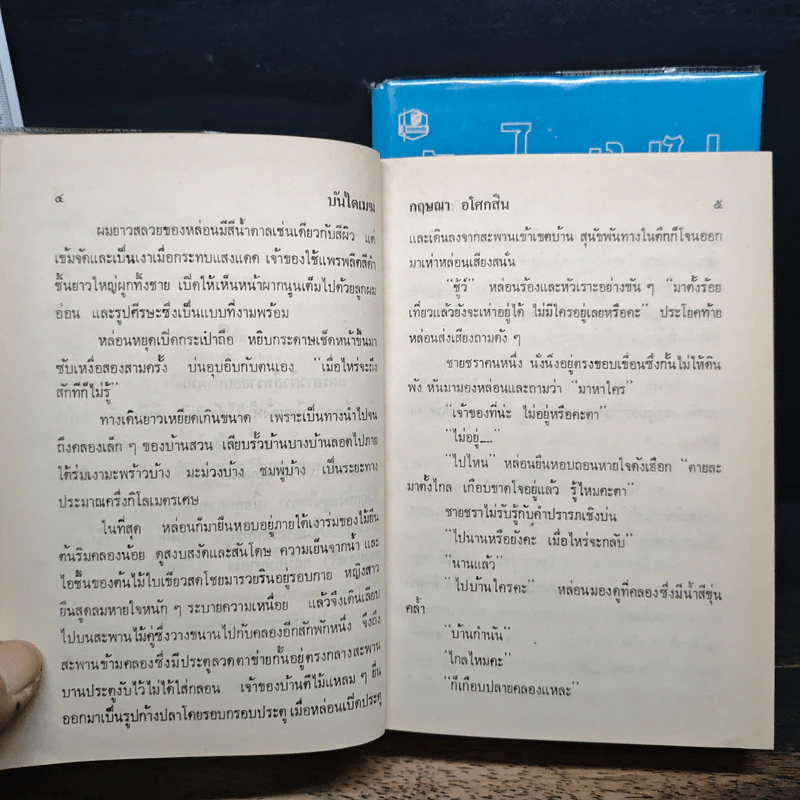 ๔
บันไดเมฆ
ผมยาวสลวยของหล่อนมีสีน้ำตาลเช่นเดียวกับสีผิว แต่
เข้มจัดและเป็นเงาเมื่อกระทบแสงแดด เจ้าของใช้แพรพลีตสีดำ
ชิ้นยาวใหญ่ผูกทิ้งชาย เปิดให้เห็นหน้าผากนูนเต็มไปด้วยลูกผม
อ่อน และรูปศีรษะซึ่งเป็นแบบที่งามพร้อม
หล่อนหยุดเปิดกระเป๋าถือ หยิบกระดาษเช็ดหน้าขึ้นมา
ซับเหงื่อสองสามครั้ง บ่นอุบอิบกับตนเอง “เมื่อไหร่จะถึง
สักทีก็ไม่รู้”
ทางเดินยาวเหยียดเกินขนาด เพราะเป็นทางนำไปจน
ถึงคลองเล็ก ๆ ของบ้านสวน เลียบรั้วบ้านบางบ้านลอดไปภาย
ใต้ร่มเงามะพร้าวบ้าง มะม่วงบ้าง ชมพู่บ้าง เป็นระยะทาง
ประมาณครึ่งกิโลเมตรเศษ
ในที่สุด หล่อนก็มายืนหอบอยู่ภายใต้เงาร่มของไม้ยืน
ต้นริมคลองน้อย ดูสงบสงัดและสันโดษ ความเย็นจากน้ำ และ
ไอชื้นของต้นไม้ใบเขียวสดโชยมารวยรินอยู่รอบกาย หญิงสาว
ยืนสูดลมหายใจหนัก ๆ ระบายความเหนื่อย แล้วจึงเดินเลียบ
ไปบนสะพานไม้คู่ซึ่งวางขนานไปกับคลองอีกสักพักหนึ่ง จึงถึง
สะพานข้ามคลองซึ่งมีประตูลวดตาข่ายกั้นอยู่ตรงกลางสะพาน
บานประตูงับไว้ไม่ได้ใส่กลอน เจ้าของบ้านตีไม้แหลม ๆ ยื่น
ออกมาเป็นรูปก้างปลาโดยรอบกรอบประตู เมื่อหล่อนเปิดประตู
กฤษณา อโศกสิน
๕
และเดินลงจากสะพานเข้าเขตบ้าน สุนัขพันทางในตึกก็โจนออก
มาเห่าหล่อนเสียงสนั่น
“ชู้ว์” หล่อนร้องและหัวเราะอย่างขัน ๆ “มาตั้งร้อย
เที่ยวแล้วยังจะเห่าอยู่ได้ ไม่มีใครอยู่เลยหรือคะ” ประโยคท้าย
หล่อนส่งเสียงถามดัง ๆ
ชายชราคนหนึ่ง นั่งนิ่งอยู่ตรงขอบเขื่อนซึ่งกั้นไม่ให้ดิน
พัง หันมามองหล่อนและถามว่า “มาหาใคร”
“เจ้าของที่น่ะ ไม่อยู่หรือคะตา”
“ไม่อยู่.....”
“ไปไหน” หล่อนยืนหอบถอนหายใจดังเฮือก “ตายละ
มาตั้งไกล เกือบขาดใจอยู่แล้ว รู้ไหมคะตา”
ชายชราไม่รับรู้กับคำปรารภเชิงบ่น
“ไปนานหรือยังคะ เมื่อไหร่จะกลับ”
“นานแล้ว”
“ไปบ้านใครคะ” หล่อนมองดูที่คลองซึ่งมีน้ำสีขุ่น
คล้ำ
“บ้านกำนัน”
“ไกลไหมคะ”
“ก็เกือบปลายคลองแหละ”